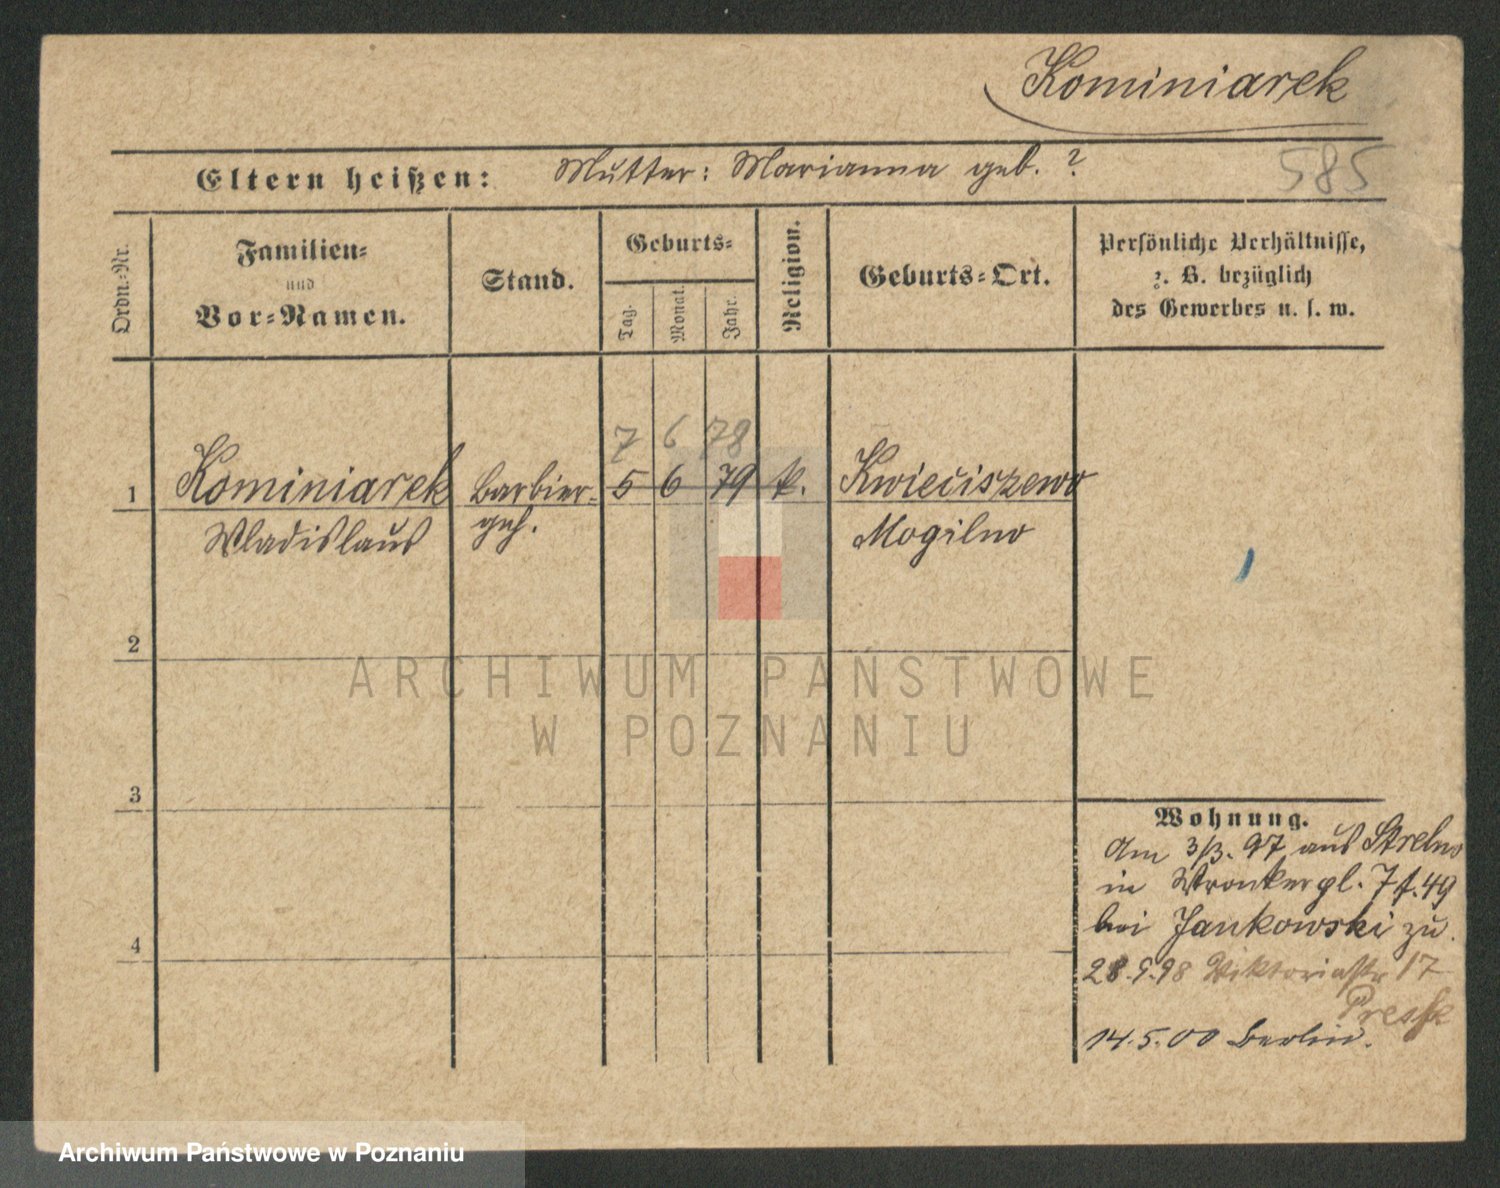 Kominiarek
585
Eltern heißen: Mutter: Marianna geb. ?
Ordn.=Nr.
Familien=
und
Vor=Namen.
Stand.
Geburts=
Tag.
Monat.
Jahr.
Religion.
Geburts=Ort.
Persönliche Verhältnisse,
z. B. bezüglich
des Gewerbes u. s. w.
7 6 78
1 Kominiarek Barbier= 5 6 79 k. Kwieciszewo
Wladislaus geh. Mogilno
2
ARCHIWUM PAŃSTWOWE
W POZNANIU
3
4
Wohnung.
Am 3/3. 97 aus Strelno
in Wronkerpl. 7 f. 49
bei Jankowski zu.
28.9.98 Viktoriastr 17
14.5.00 Berlin.
Archiwum Państwowe w Poznaniu